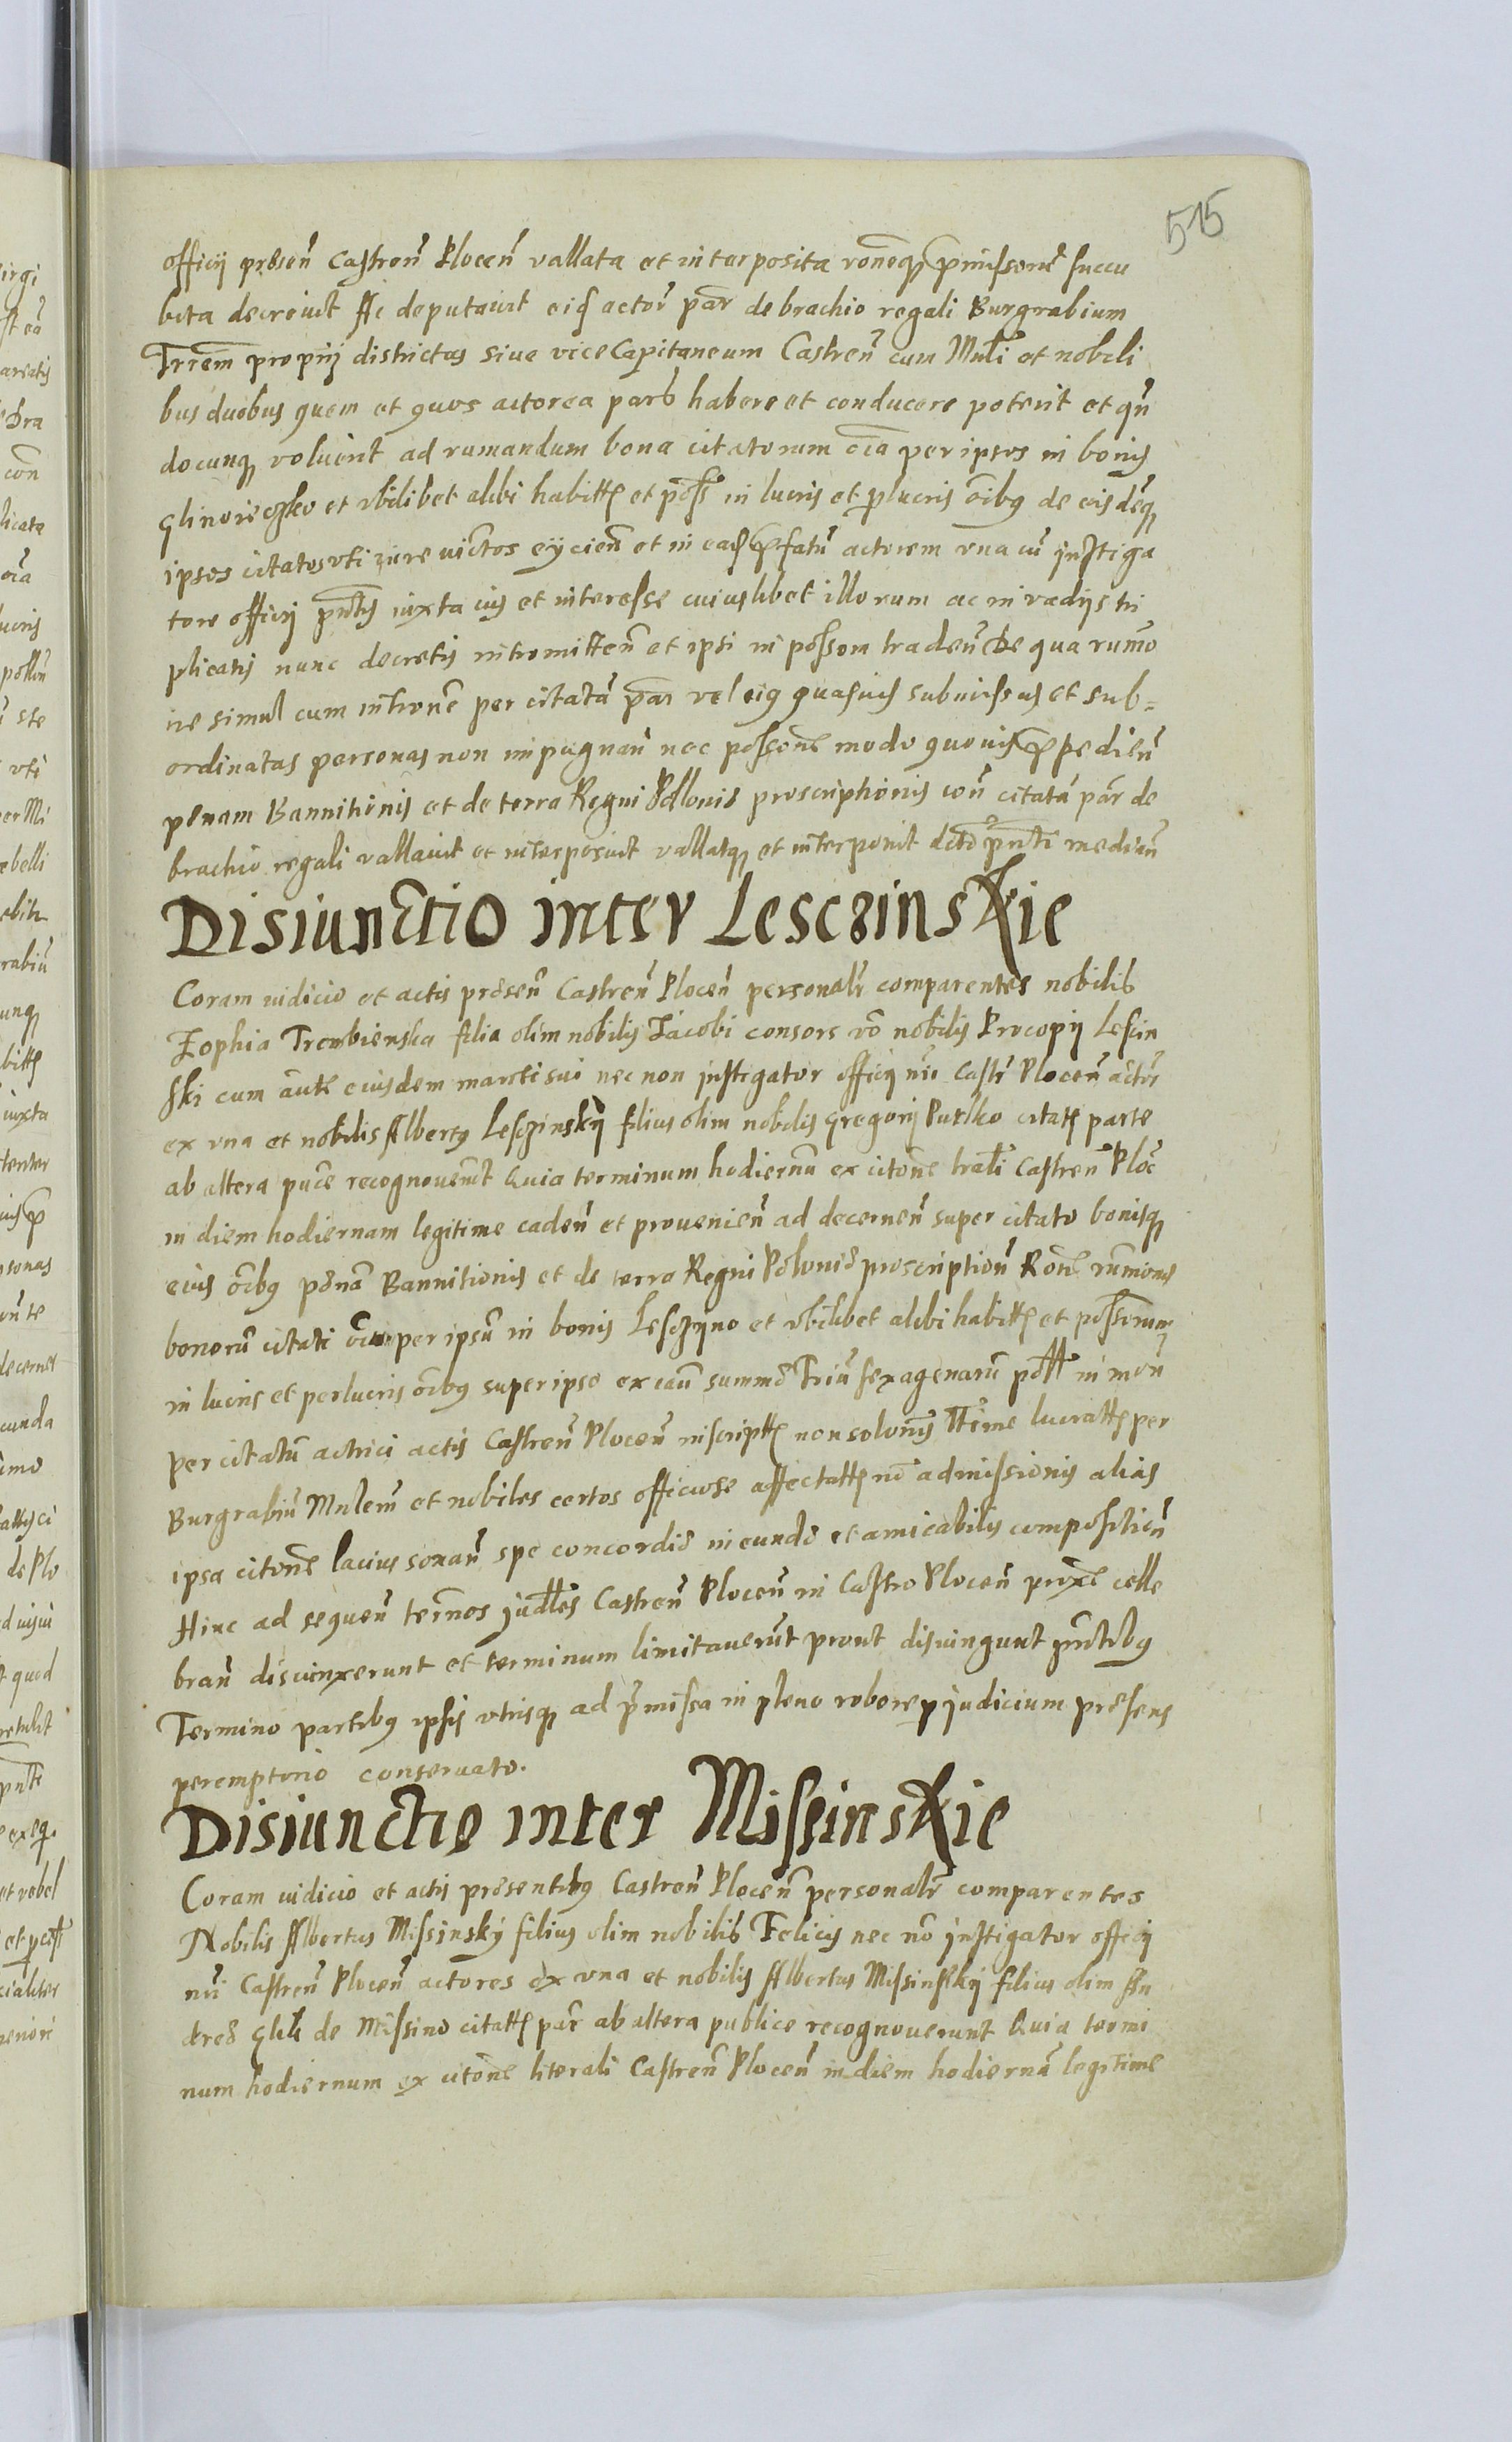 515
officij præsen̄ Castren̄ Plocen̄ vallata et interposita rōnéqꝫ p̄missorū succu
bita decreuit Ac deputauit eid actor̄ par̄ de brachio regali Burgrabium
Trrēm proprij districtus siue vice Capitaneum Castren̄ cum Mnl̄i et nobili
bus duobus quem et quos actorea pars habere et conducere poterit et qn̄
docunqꝫ voluerit ad rumandum bona citatorum oīa per ipsos in bonis
Glinoieczko et vbilibet alibi habitt et poss̄ in lucris et plucris oībus de eisdēqꝫ
ipsos citatos vti iure victos eijcien̄ et in ead p̄fatū actorem vna cū instiga
tore officij pn̄tis iuxta ius et interesse cuiuslibet illorum ac in vadijs tri
plicatis nunc decretis intromitten̄ et ipsi in possom traden̄ De qua rumo
ne simul cum intrōne per citatā par̄ vel eius quasuis submissas et sub=
ordinatas personas non impugnan̄ nec possone modo quouis p̄pedien̄
penam Bannitionis et de terra Regni Poloniæ proscriptionis con̄ citatā par̄ de
brachio regali vallauit et interposuit vallatqꝫ et interponit dcto pn̄ti median̄
Disiunctio inter Lesczinskie
Coram iudicio et actis præsen̄ Castren̄ Plocen̄ personalr̄ comparentes nobilis
Zophia Trembienska filia olim nobilis Jacobi consors vō nobilis Procopij Lescin
ski cum aut̄e eiusdem mariti sui nec non instigator officij nr̄i Castr̄ Plocen̄ actor̄
ex vna et nobilis Albertus Lesczinskÿ filius olim nobilis Gregorij Puslko citatꝫ parte
ab altera pu͞ce recognouerūt Quia terminum hodiernū ex citōne trali Castren̄ Ploc̄
in diem hodiernam legitime caden̄ et prouenien̄ ad decernen̄ super citato bonisqꝫ
eius oībus pænā Bannitionis et de terra Regni Poloniæ proscription̄ Rōne rumionis
bonorū citati oīu per ipsū in bonis Lesczyno et vbilibet alibi habitt et possorum
in lucris et perlucris oībus super ipso ex caū summæ Triū sexagenarū poll̄ in mon̄
per citatū actrici actis Castren̄ Plocen̄ inscriptꝫ non solonis ltīme lucrattꝫ per
Burgrabiū Mnlem̄ et nobiles certos officiose affectattꝫ nō admissionis alias
ipsa citōne lacius sonan̄ spe concordiæ ineundæ et amicabilis composition̄
Hinc ad sequen̄ termōs judlēs Castren̄ Plocen̄ in Castro Plocen̄ proxe celle
bran̄ disiunxerunt et terminum limitauerūt prout disiungunt pn̄tibus
Termino partibus ipsis vtrisqꝫ ad p̄missa in pleno robore p judicium præsens
peremptorio conseruato.
Disiunctio inter Missinskie
Coram iudicio et actis præsentibus Castren̄ Plocen̄ personalr̄ comparentes
Nobilis Albertus Missinskÿ filius olim nobilis Felicis nec nō instigator officij
nr̄i Castren̄ Plocen̄ actores ex vna et nobilis Albertus Missinskÿ filius olim An
dreæ de Missino citattꝫ par̄ ab altera publice recognouerunt Quia termi
num hodiernum ex citōne literali Castren̄ Plocen̄ in diem hodiernā legitime